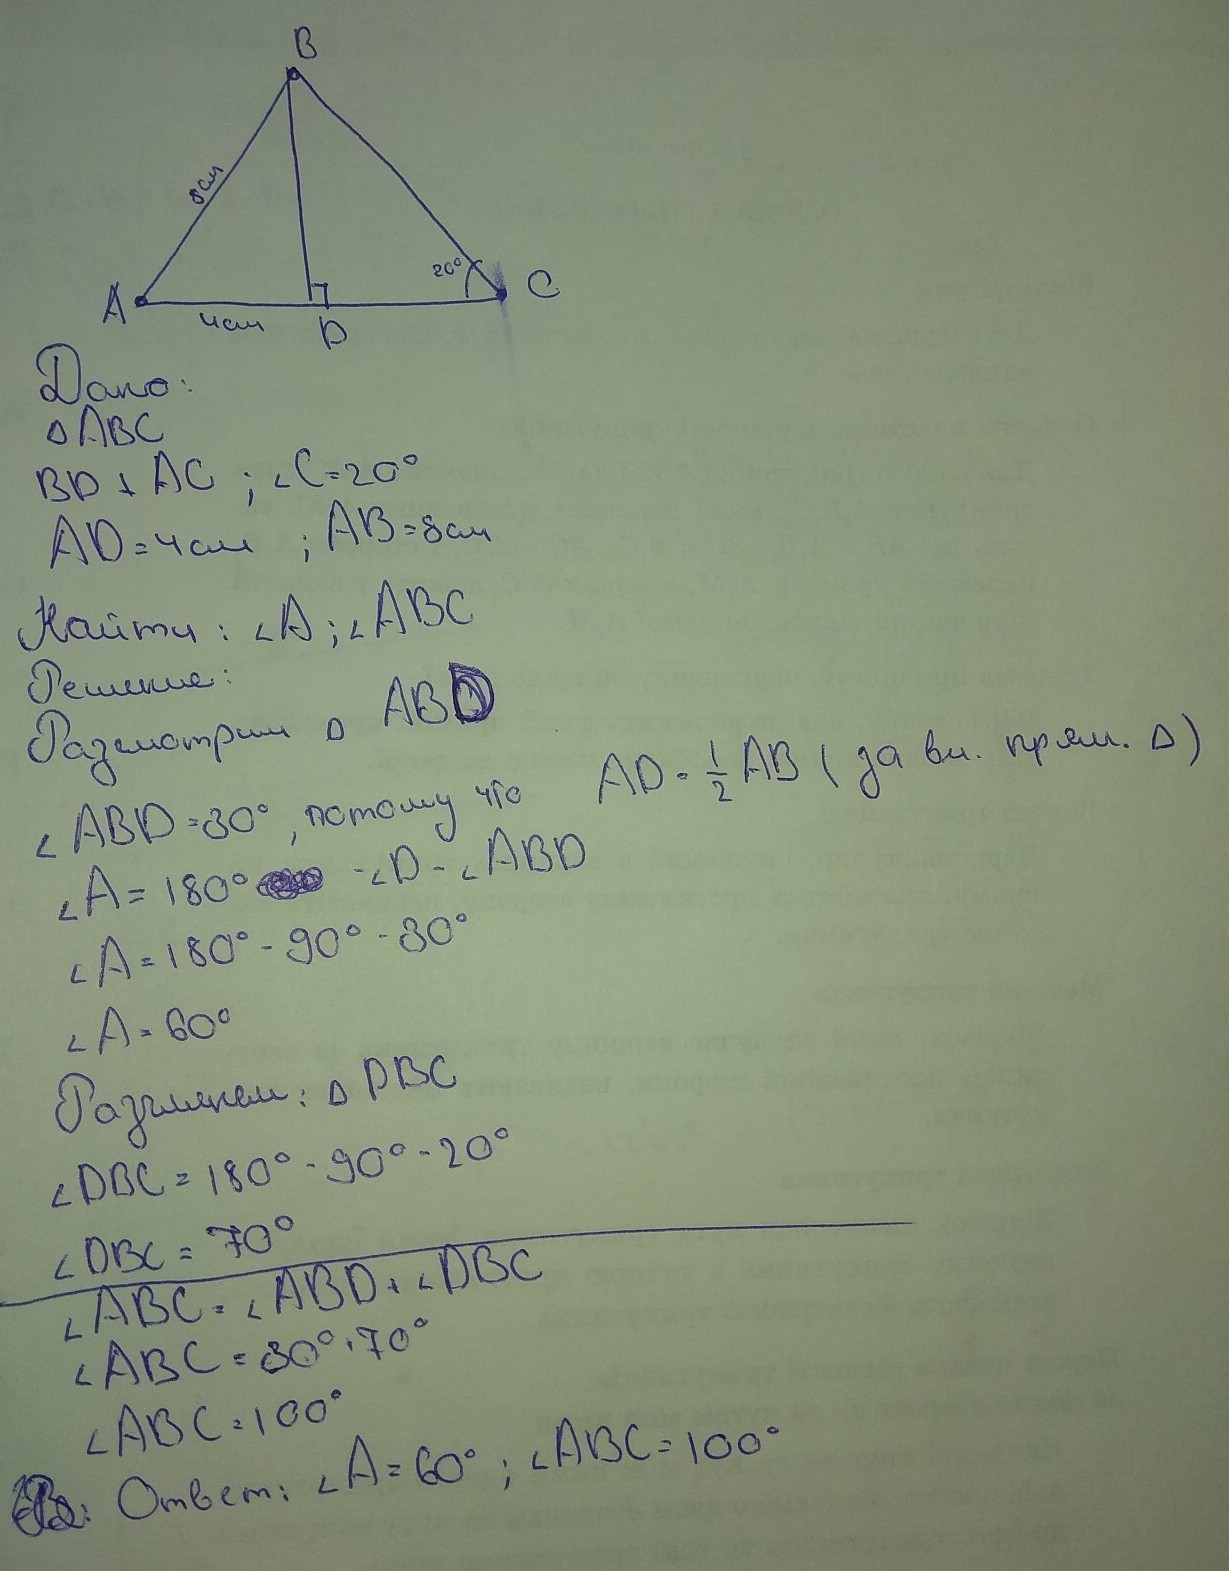 B
8см
20°
A
C
4см
D
Дано:
△ABC
BD ⊥ AC ; ∠C=20°
AD=4см ; AB=8см
Найти: ∠A; ∠ABC
Решение:
Размотрим △ ABD
∠ABD=30°, потому что AD = 1/2 AB ( за вл. прям. △)
∠A= 180° - ∠D - ∠ABD
∠A=180° - 90° - 30°
∠A=60°
△ DBC
∠DBC=180° - 90° - 20°
∠DBC=70°
∠ABC=∠ABD+∠DBC
∠ABC=30°+70°
∠ABC=100°
Ответ: ∠A=60° ; ∠ABC=100°